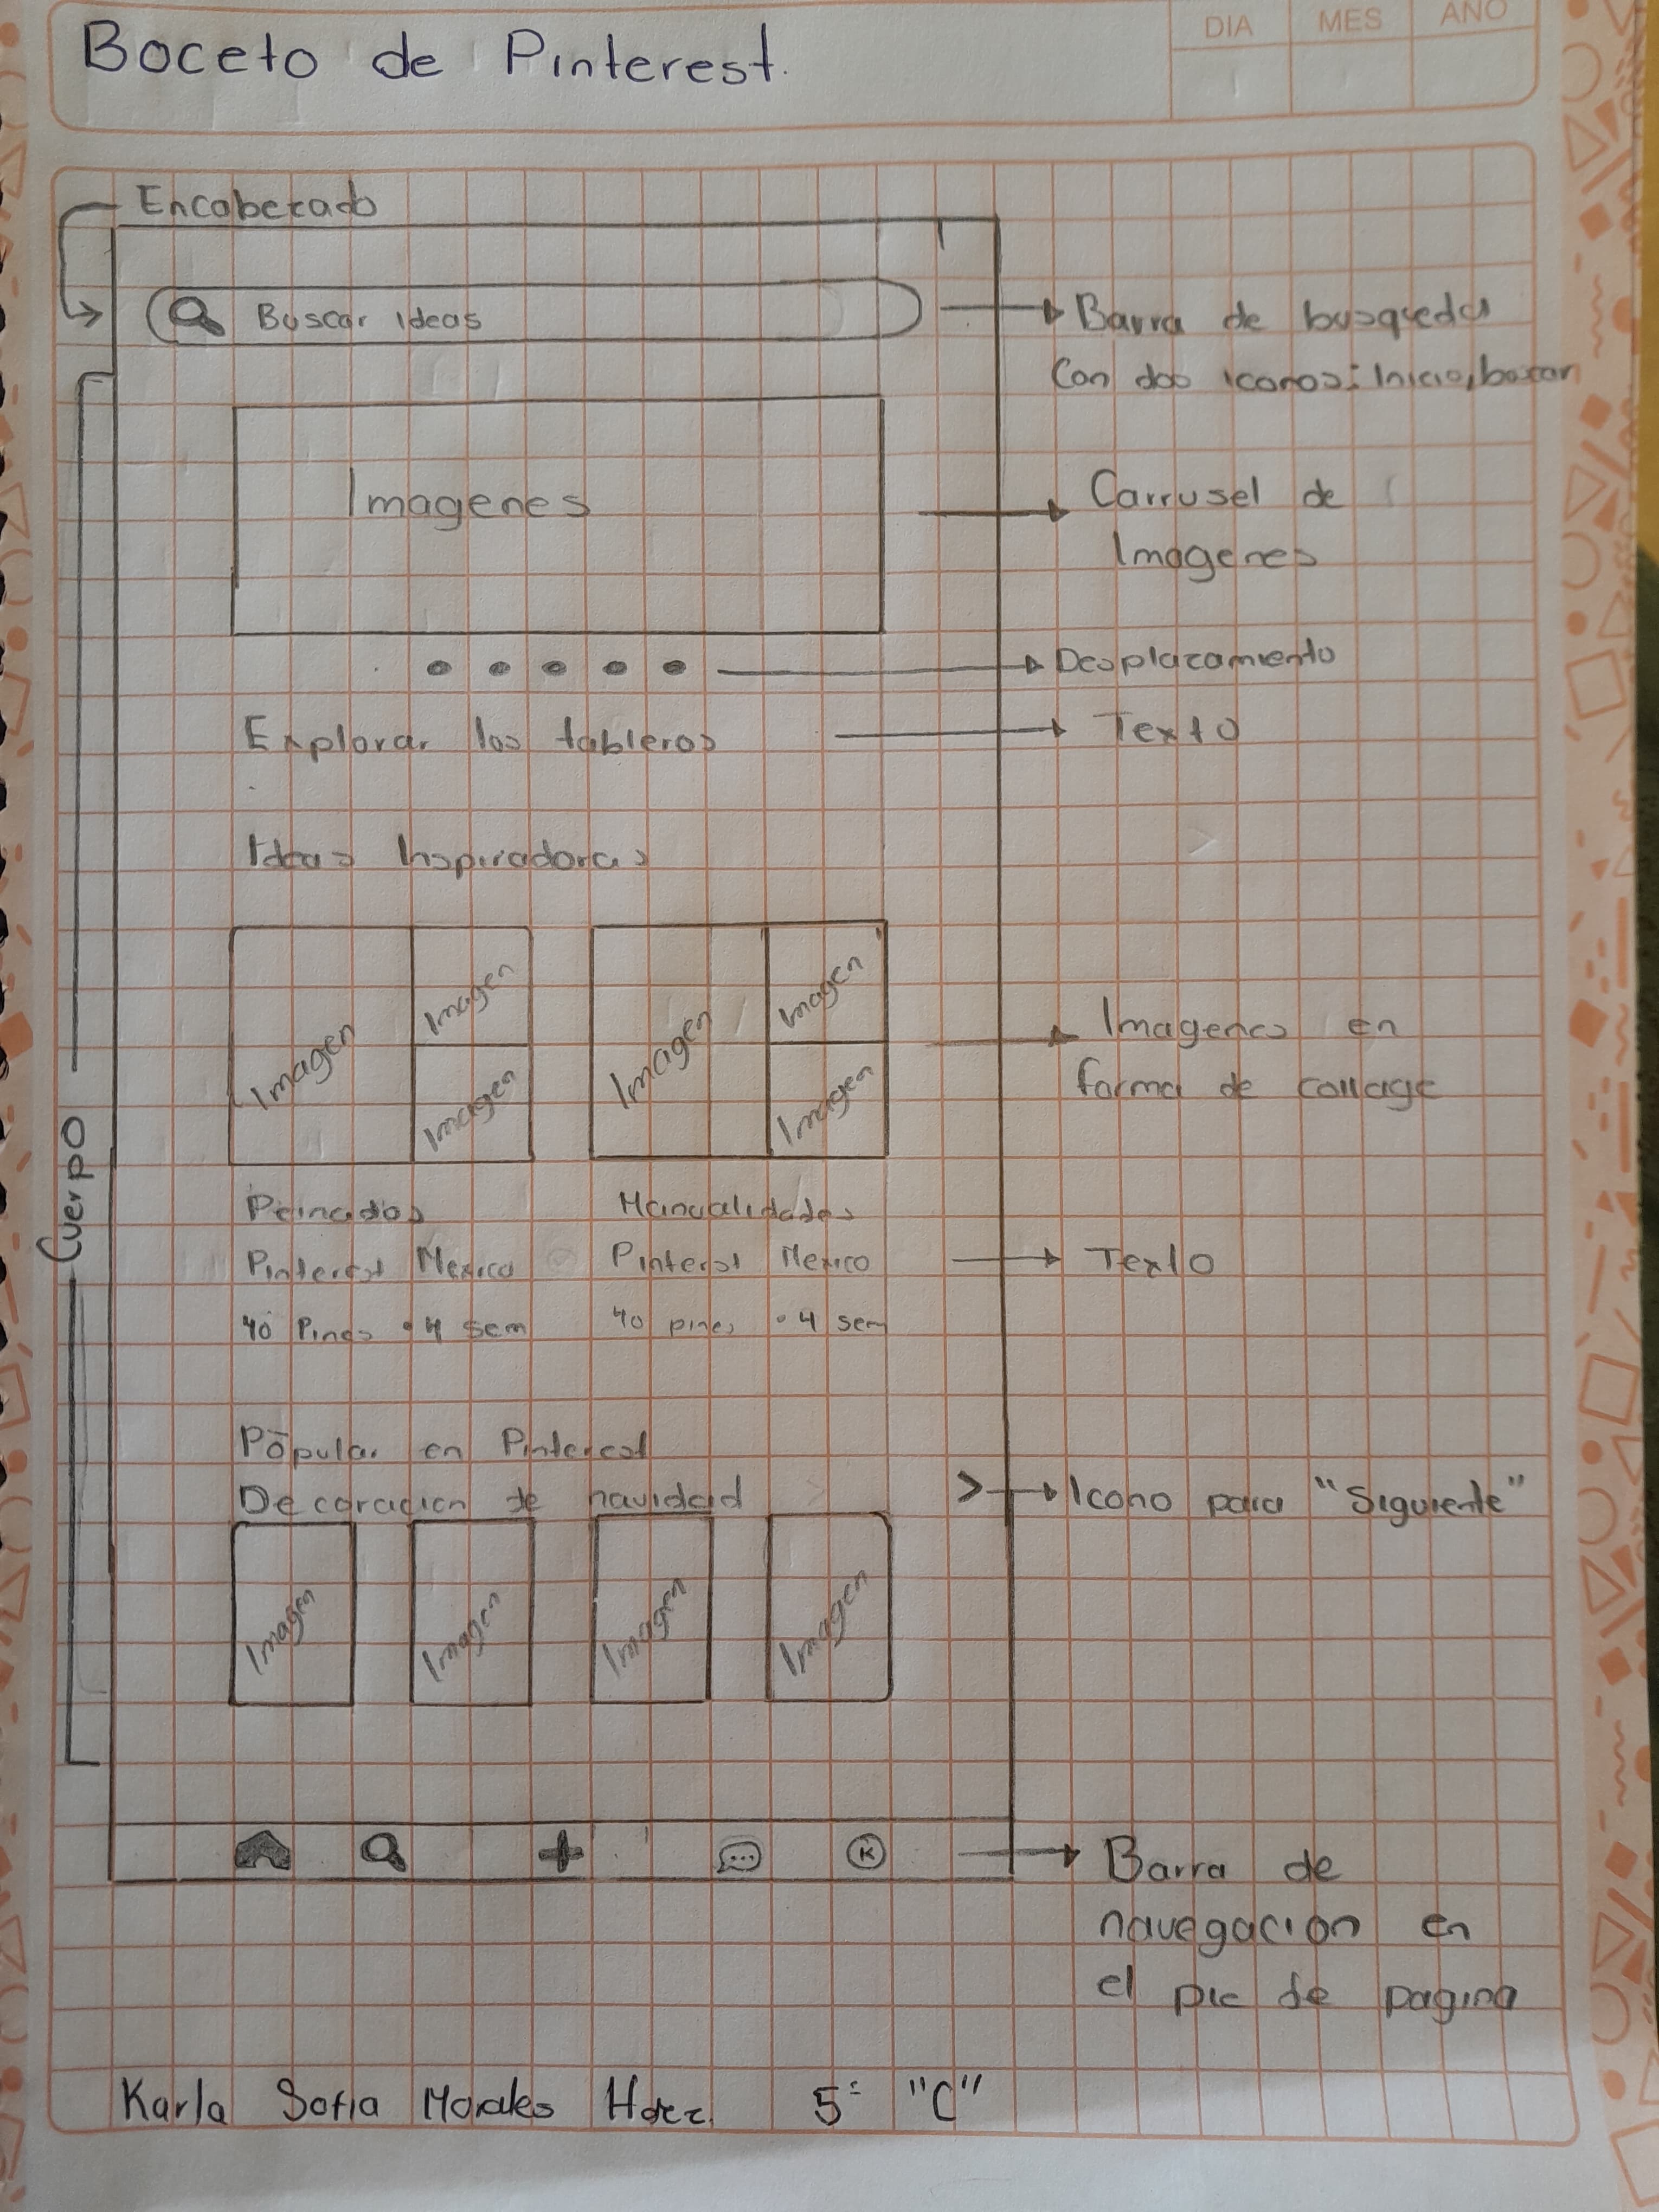 DIA MES AÑO
Boceto de Pinterest.
Encabezado
Buscar ideas
Barra de busqueda
Con dos iconos: Inicio, buscar
Imagenes
Carrusel de
Imagenes
Desplazamiento
Explorar los tableros
Texto
Ideas Inspiradoras
Imagen
Imagen
Imagen
Imagen
Imagen
Imagen
Imagenes en
forma de collage
Cuerpo
Peinados
Pinterest Mexico
40 Pines • 4 sem
Manualidades
Pinterest Mexico
40 pines • 4 sem
Texto
Popular en Pinterest
Decoracion de navidad
>
Icono para "Siguiente"
Imagen
Imagen
Imagen
Imagen
K
Barra de
navegacion en
el pie de pagina
Karla Sofia Morales Hdez. 5° "C"